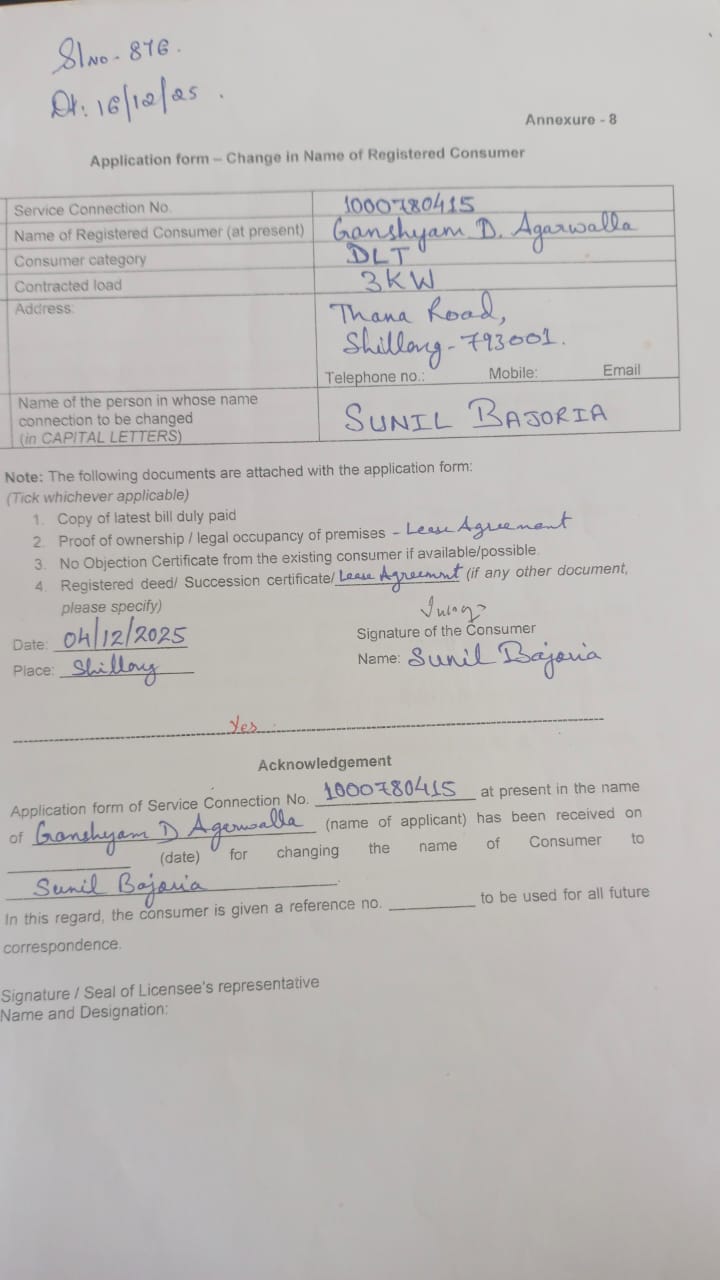 Sl No - 876.
Dt: 16/12/25.
Annexure - 8
Application form – Change in Name of Registered Consumer
Service Connection No. 1000780415
Name of Registered Consumer (at present) Ganshyam D. Agarwalla
Consumer category DLT
Contracted load 3KW
Address: Thana Road,
Shillong - 793001.
Telephone no.: Mobile: Email
Name of the person in whose name
connection to be changed
(in CAPITAL LETTERS) SUNIL BAJORIA
Note: The following documents are attached with the application form:
(Tick whichever applicable)
1. Copy of latest bill duly paid
2. Proof of ownership / legal occupancy of premises - Lease Agreement
3. No Objection Certificate from the existing consumer if available/possible.
4. Registered deed/ Succession certificate/ Lease Agreement (if any other document,
please specify)
Date: 04/12/2025
Signature of the Consumer
Place: Shillong
Name: Sunil Bajoria
Yes
Acknowledgement
Application form of Service Connection No. 1000780415 at present in the name
of Ganshyam D Agarwalla (name of applicant) has been received on
(date) for changing the name of Consumer to
Sunil Bajoria.
In this regard, the consumer is given a reference no. ________ to be used for all future
correspondence.
Signature / Seal of Licensee's representative
Name and Designation: